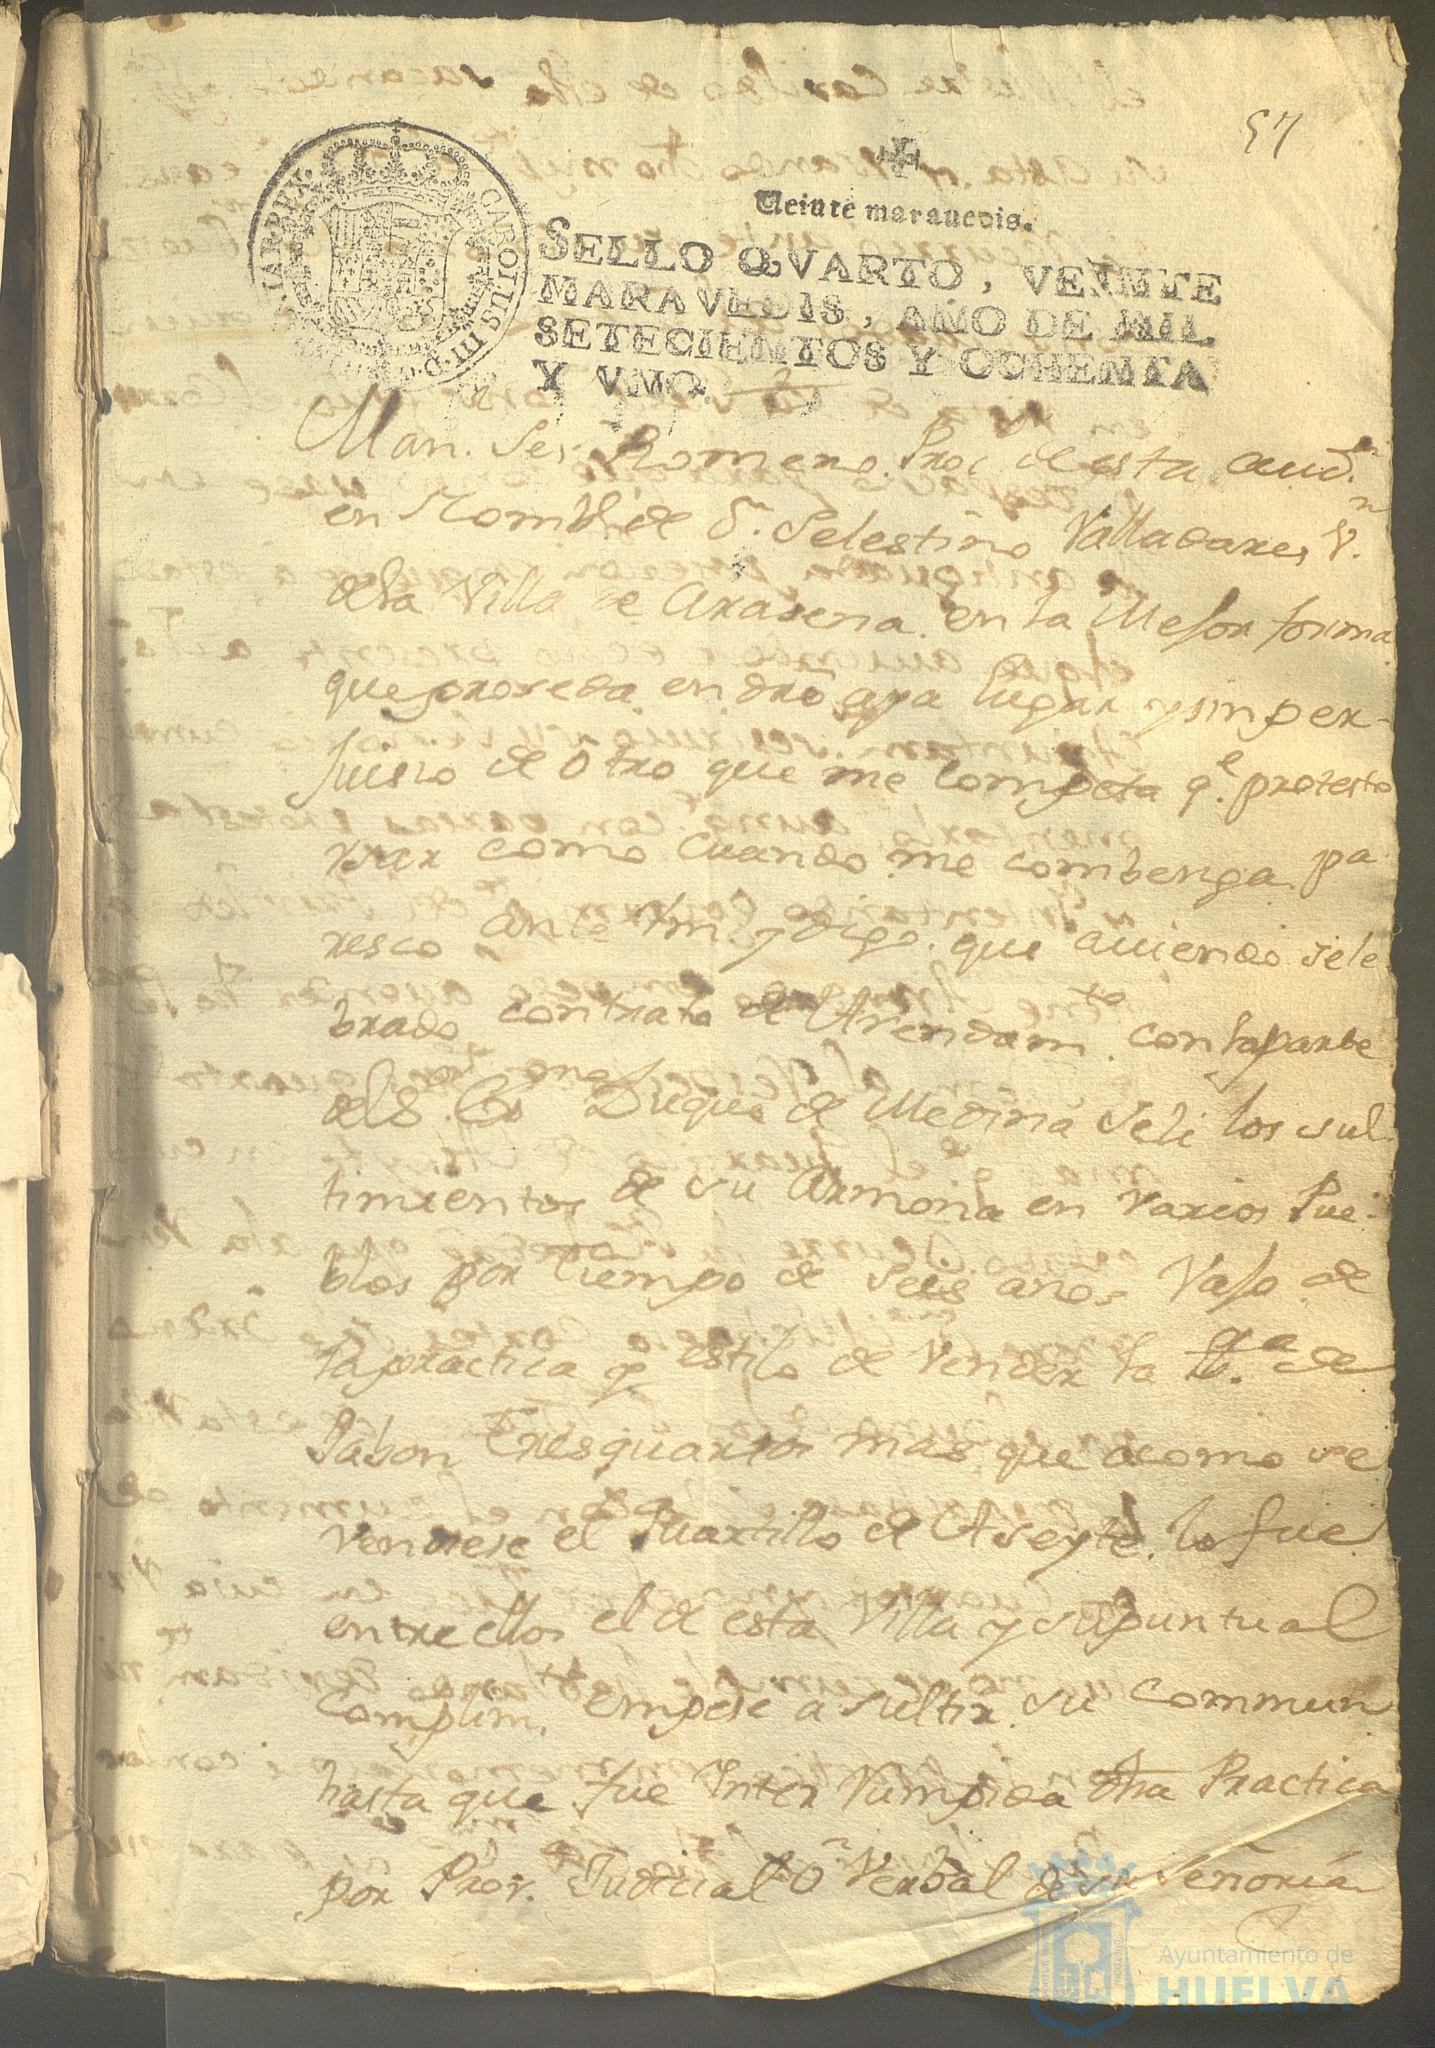 57
Veinte marauedis.
SELLO QVARTO, VEINTE
MARAVEDIS, AÑO DE MIL
SETECIENTOS Y OCHENTA
Y VNO.
CAROLUS III D. G. HISPANIAR. REX
Man. Ses. Romero Proc. de esta aud.ª
en Nombre de Dn. Selestino Valladares, V.n
dela Villa de Arasena en la Mejor forma
que proseda en dro aya lugar y sin per-
juisio de otro que me competa q.e protesto
usar como cuando me combenga pa
resco ante Vm y digo que auiendo sele
brado contrato de Arendam.to con la parte
del S. Duque de Medina Seli los sul
timientos de su Armona en varios Pue
blos por tiempo de seis años Vajo de
la practica y estilo de Vender la lb.ra de
Jabon tres quartos mas que acomo se
Vendiese el Quartillo de Aseyte, lo fue
entre ellos el de esta Villa y su puntual
Complim.to empese a sultir su commun
hasta que fue Inter Rumpida dha Practica
por Prov.n Judicial o Verbal de su Señoria
Ayuntamiento de
HUELVA